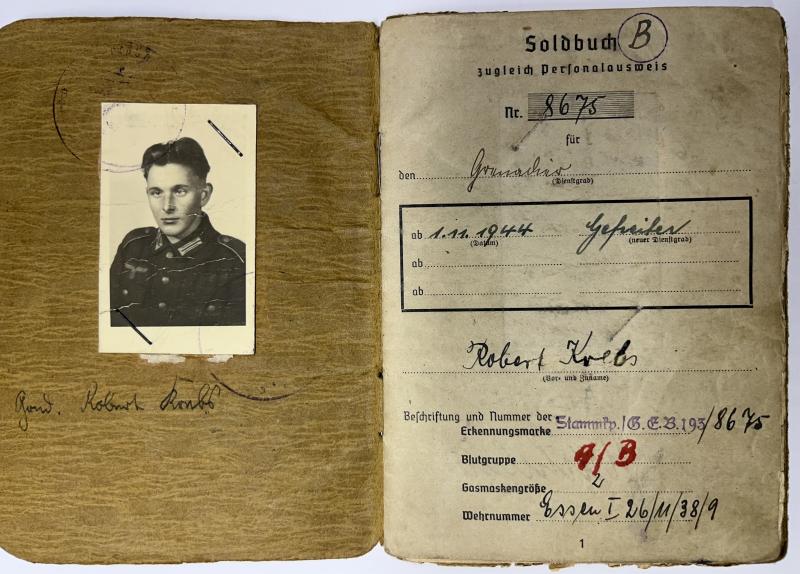 Robert Krebs
Soldbuch B
zugleich Personalausweis
Nr. 8675
für
den Grenadier
(Dienstgrad)
ab 1.11.1944 Gefreiter
(Datum) (neuer Dienstgrad)
ab
ab
Robert Krebs
(Vor- und Zuname)
Beschriftung und Nummer der
Erkennungsmarke Stammkp./G.E.B.193/8675
Blutgruppe /B
Gasmaskengröße 2
Wehrnummer Essen I 26/11/38/9
1